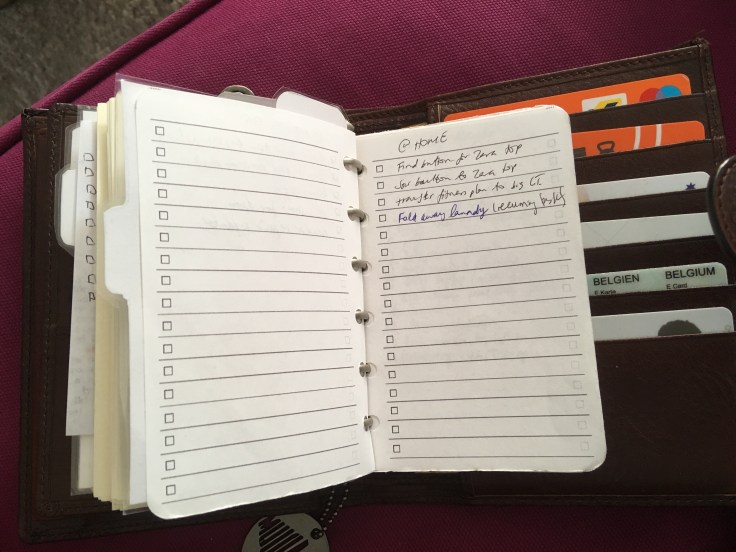 @ HOME
Find button for Zara top
Sew button to Zara top
transfer fitness plan to big
Fold away laundry (relieving
BELGIEN BELGIUM
E Karte E Card